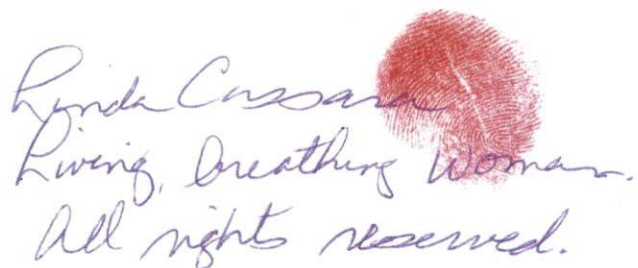 Linda Cassara
Living, breathing woman.
All rights reserved.